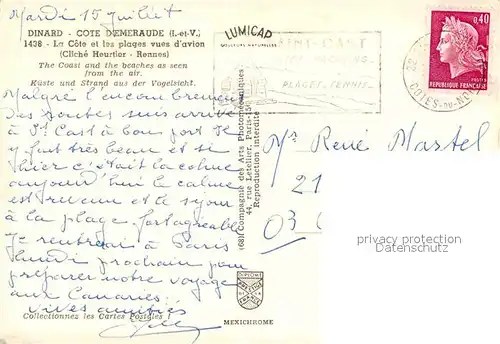 Mardi 15 juillet
DINARD - COTE DEMERAUDE (I.-et-V.)
1438 - La Côte et les plages vues d'avion
(Cliché Heurtier - Rennes)
The Coast and the beaches as seen
from the air.
Küste und Strand aus der Vogelsicht.
LUMICAP
COULEURS NATURELLES
SAINT-CAST
PLAGES, TENNIS
0,40
POSTES
REPUBLIQUE FRANÇAISE
22
COTES-DU-NORD
Malgré l'encombrement
des routes suis arrivé
à St Cast à bon port. Il
y fait très beau et si
hier c'était la cohue
aujourd'hui le calme
est revenu et le séjour
à la plage fort agréable
Je rentrerai à Paris
lundi prochain pour
préparer notre voyage
aux Canaries.
Vives amitiés
(68) Compagnie des Arts Photomécaniques
44, rue Letellier, Paris-15e
Reproduction interdite
Mr René Martel
21
03
privacy protection
watermark
DIPLOME
MEXICHROME
Collectionnez les Cartes Postales !